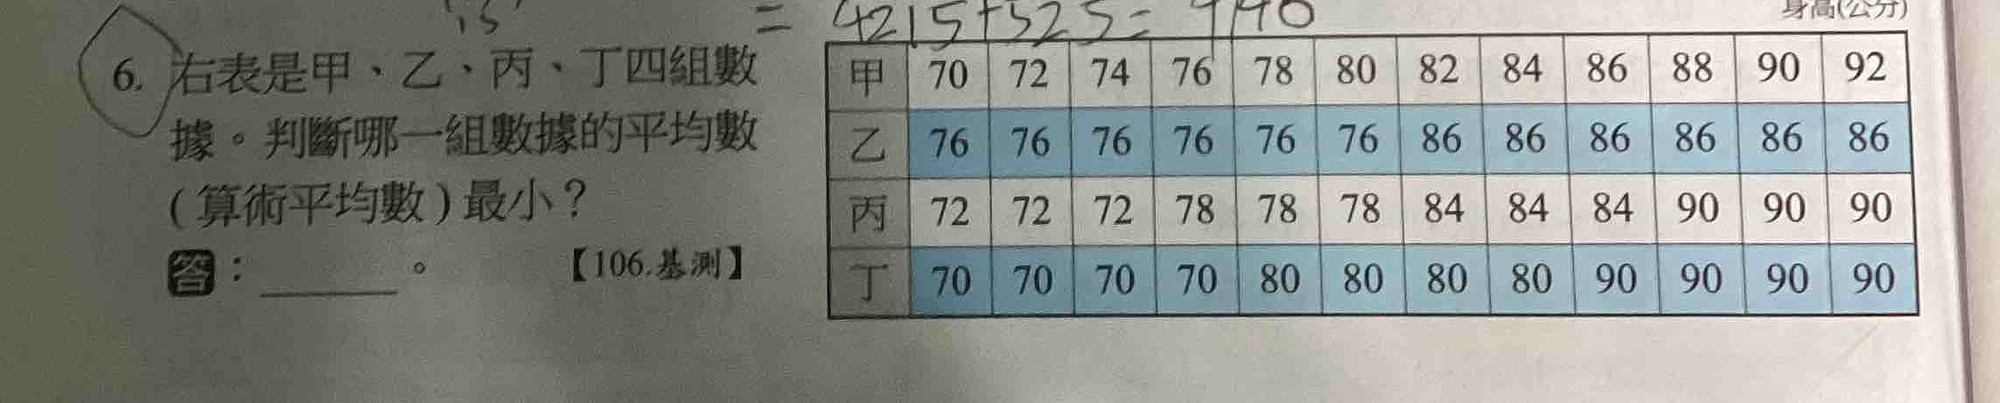 15
= 4215+525= 4740
身高(公分)
6. 右表是甲、乙、丙、丁四組數
據。判斷哪一組數據的平均數
(算術平均數)最小？
答：______。 【106.基測】
甲 70 72 74 76 78 80 82 84 86 88 90 92
乙 76 76 76 76 76 76 86 86 86 86 86 86
丙 72 72 72 78 78 78 84 84 84 90 90 90
丁 70 70 70 70 80 80 80 80 90 90 90 90